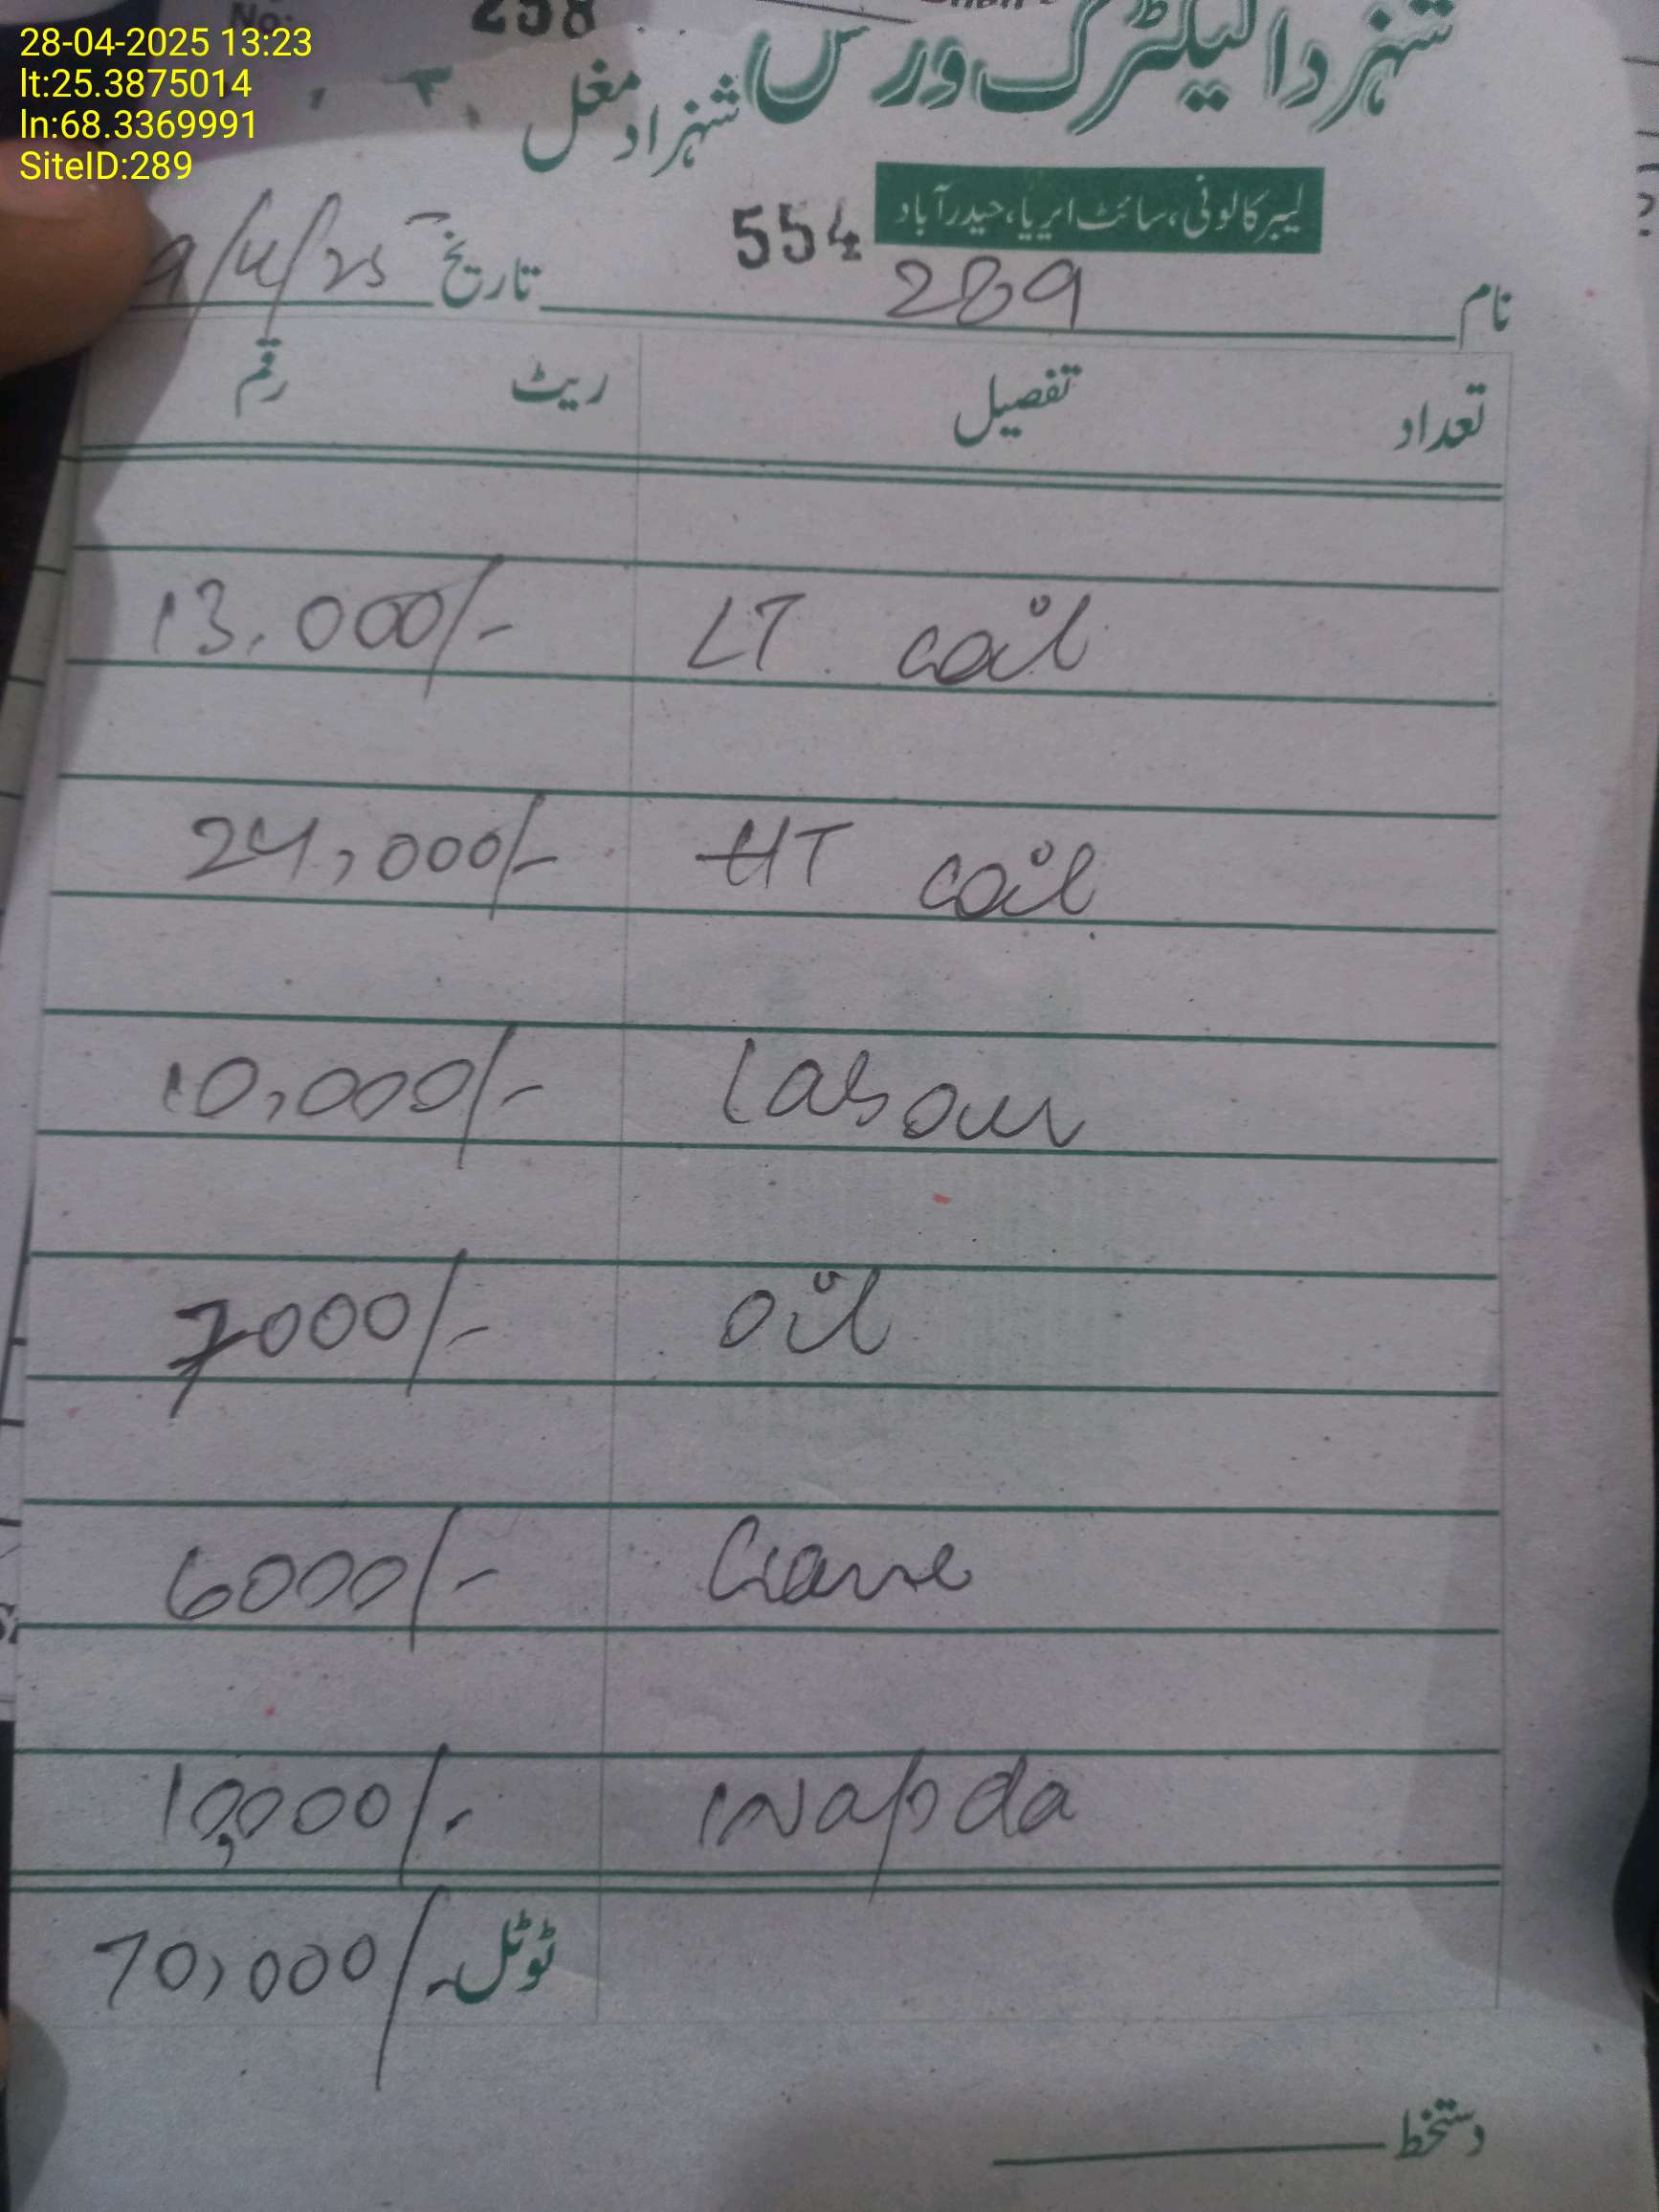 28-04-2025 13:23
lt:25.3875014
ln:68.3369991
SiteID:289
No: 258
شہزاد الیکٹرک ورکس
شہزاد مغل
لیبر کالونی، سائٹ ایریا، حیدرآباد
554
نام 289 تاریخ 9/4/25
تعداد تفصیل ریٹ رقم
LT coil 13,000/-
HT coil 24,000/-
Labour 10,000/-
oil 7000/-
Crane 6000/-
wapda 10,000/-
ٹوٹل 70,000/-
دستخط